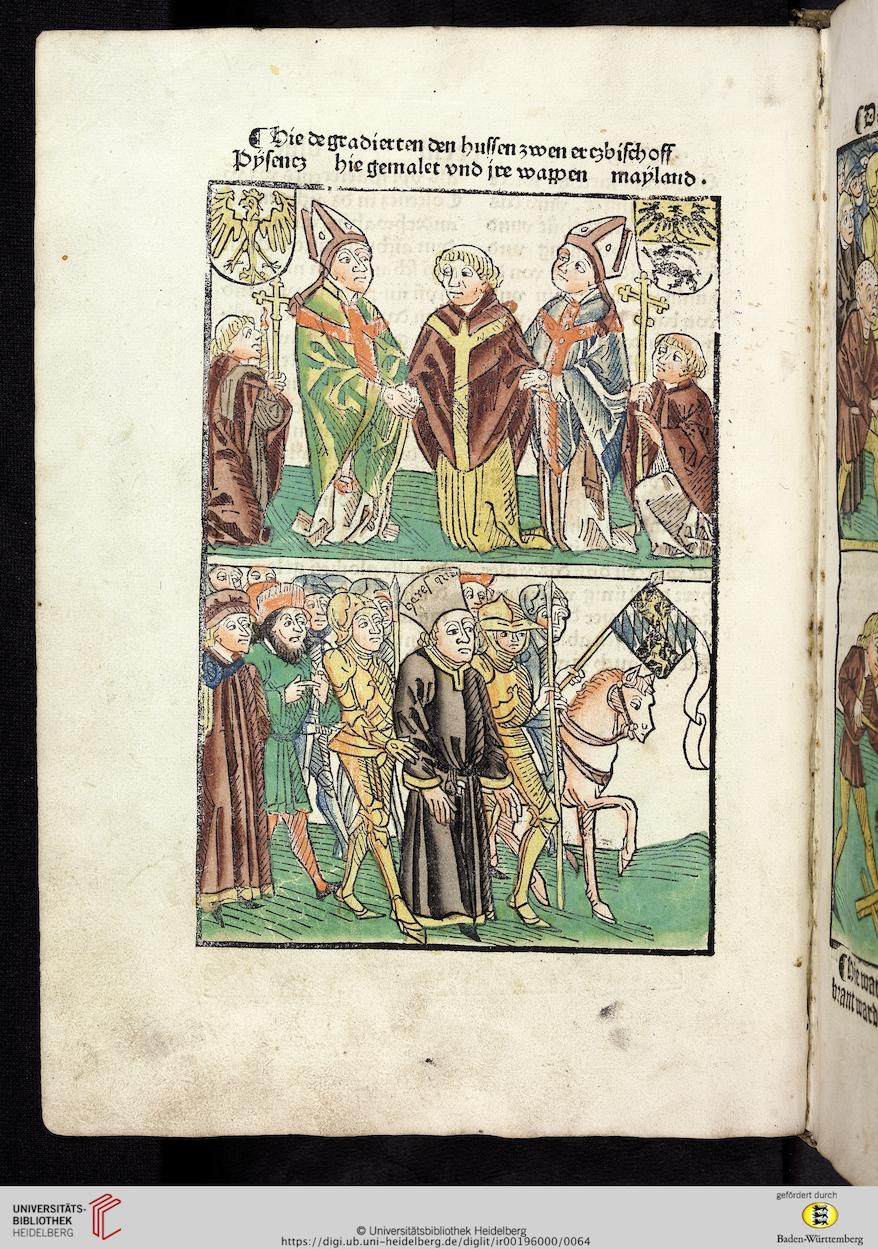 ¶ Hie degradierten den hussen zwen erczbischoff
Pysencz hie gemalet vnd jre wappen mayland .
heresi
UNIVERSITÄTS-
BIBLIOTHEK
HEIDELBERG
© Universitätsbibliothek Heidelberg
https://digi.ub.uni-heidelberg.de/diglit/ir00196000/0064
gefördert durch
Baden-Württemberg